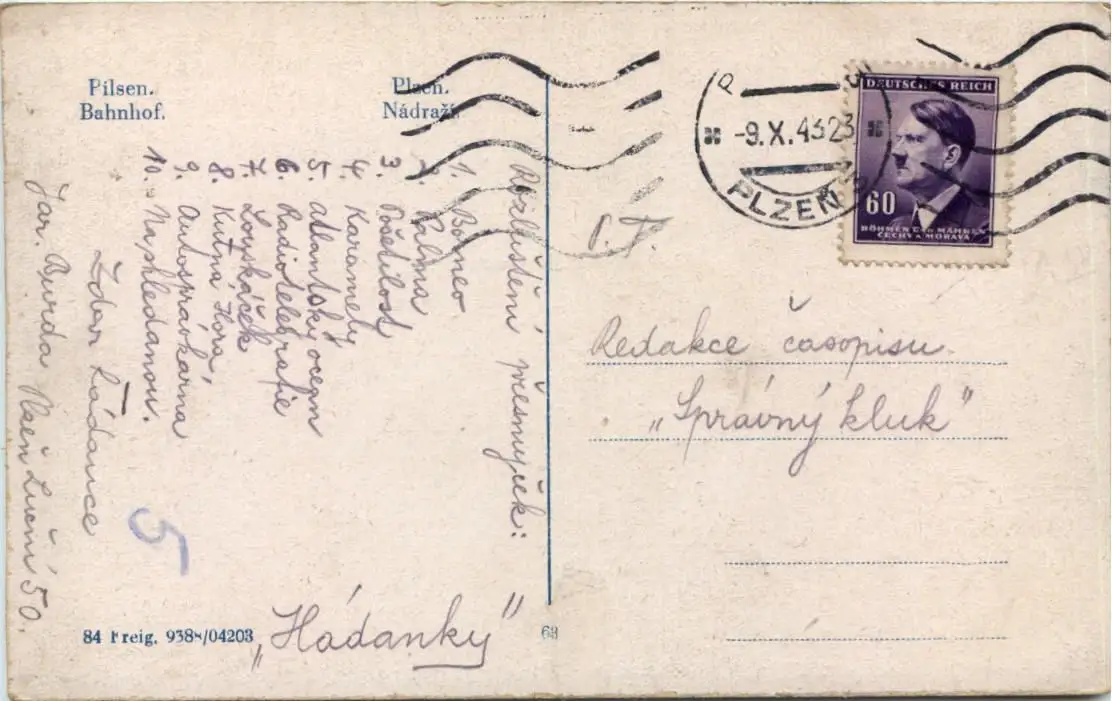 Pilsen.
Bahnhof.
Plzeň.
Nádraží.
Rozluštění přesmyček:
1. Borneo
2. Palma
3. Pošetilost
4. Karamely
5. atlantský oceán
6. Radiotelegrafie
7. Louskáček
8. Kutná Hora,
9. Autosprávkárna
10. Na shledanou.
Zdar Hádance
Jar. Burda Plzeň Luční 50.
5
84 Freig. 9388/04203
„Hádanky“
63
-9.X.43 23
PLZEŇ
DEUTSCHES REICH
60
BÖHMEN UND MÄHREN
ČECHY A MORAVA
P. F.
Redakce časopisu
„Správný kluk“